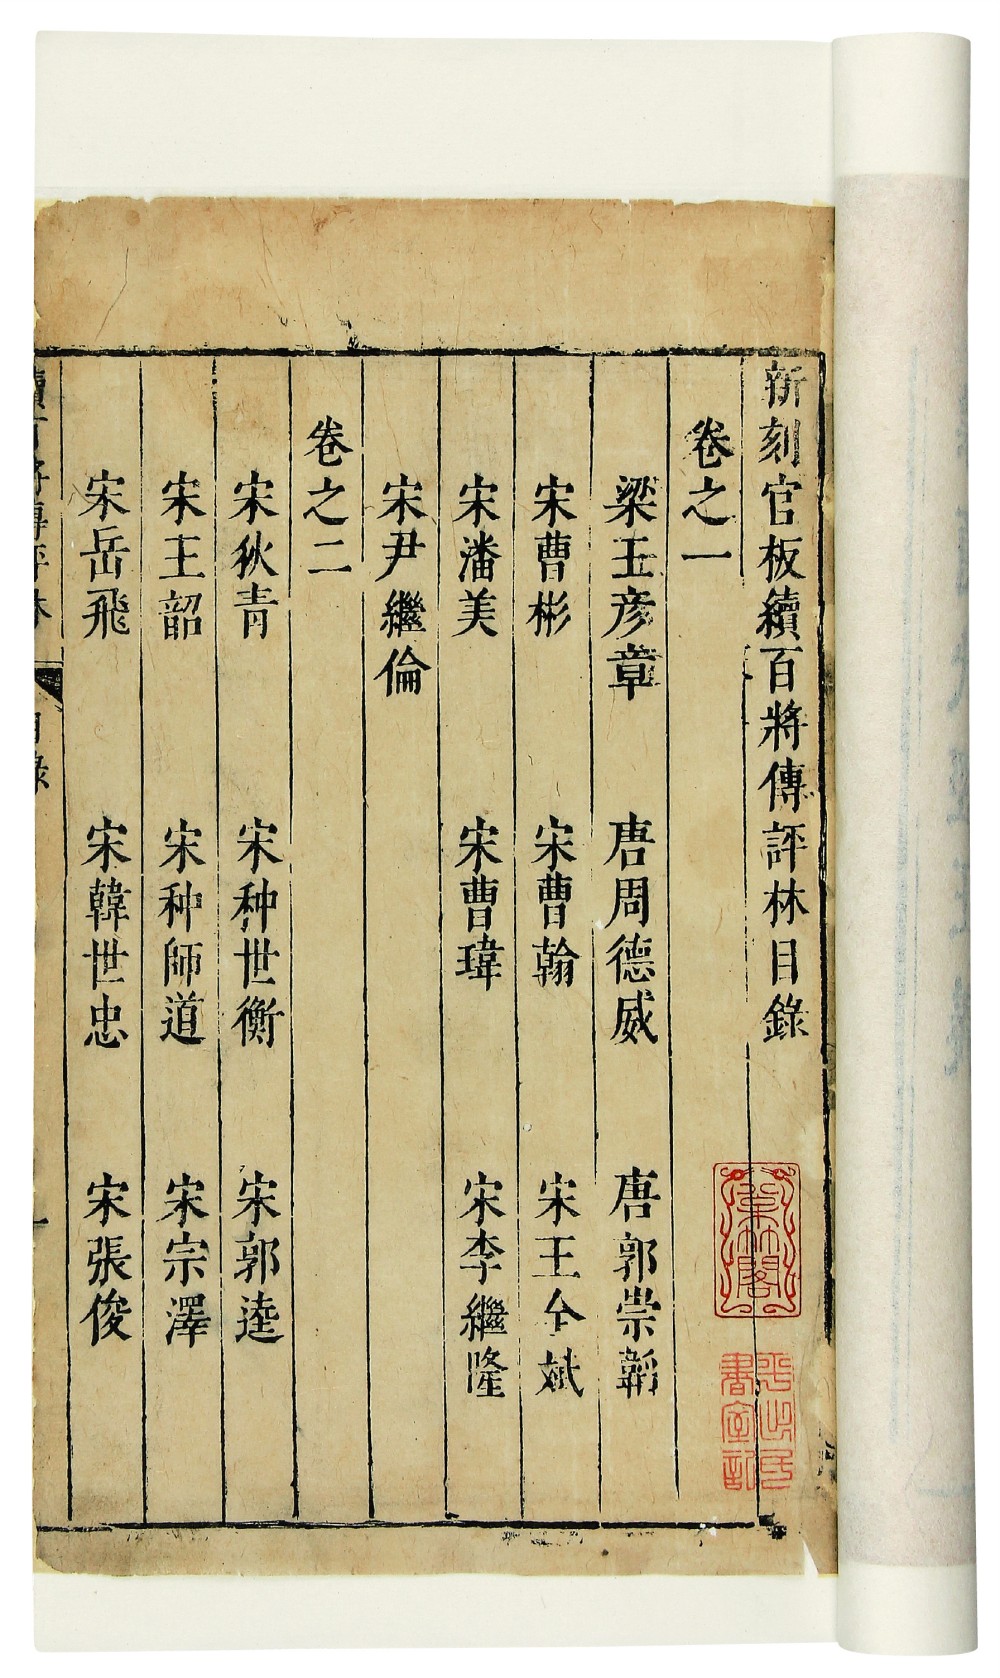 新刻官板續百將傳評林目錄
卷之一
梁王彥章 唐周德威 唐郭崇韜
宋曹彬 宋曹翰 宋王全斌
宋潘美 宋曹瑋 宋李繼隆
宋尹繼倫
卷之二
宋狄青 宋种世衡 宋郭逵
宋王韶 宋种師道 宋宗澤
宋岳飛 宋韓世忠 宋張俊
續百將傳評林 目錄 一